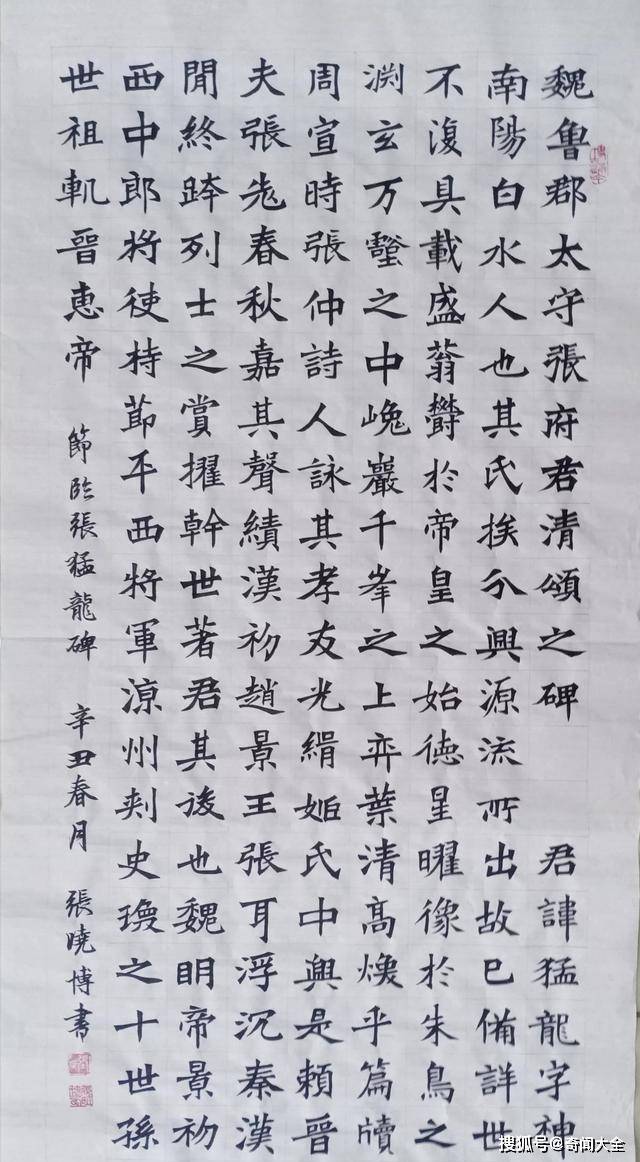 魏魯郡太守張府君清頌之碑　君諱猛龍字神
南陽白水人也其氏挨分興源流所出故已備詳世
不復具載盛蓊欝於帝皇之始德星曜像於朱鳥之
渊玄万壑之中巉巖千峯之上弈葉清高煥乎篇牘
周宣時張仲詩人詠其孝友光緝姬氏中興是賴晉
夫張老春秋嘉其聲績漢初趙景王張耳浮沉秦漢
聞終跨列士之賞擢幹世著君其後也魏明帝景初
西中郎將使持節平西將軍涼州刺史瑍之十世孫
世祖軌晉恵帝　節临張猛龍碑　辛丑春月　張曉博書
搜狐号@奇闻大全